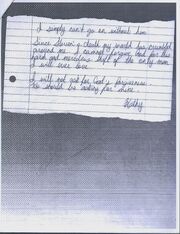 I simply can't go on without him
Since Steven's death my world has crumbled
around me. I cannot forgive God for this
hard and merciless theft of the only man
I will ever love.
I will not ask for God's forgiveness.
He should be asking for mine.
Kathy